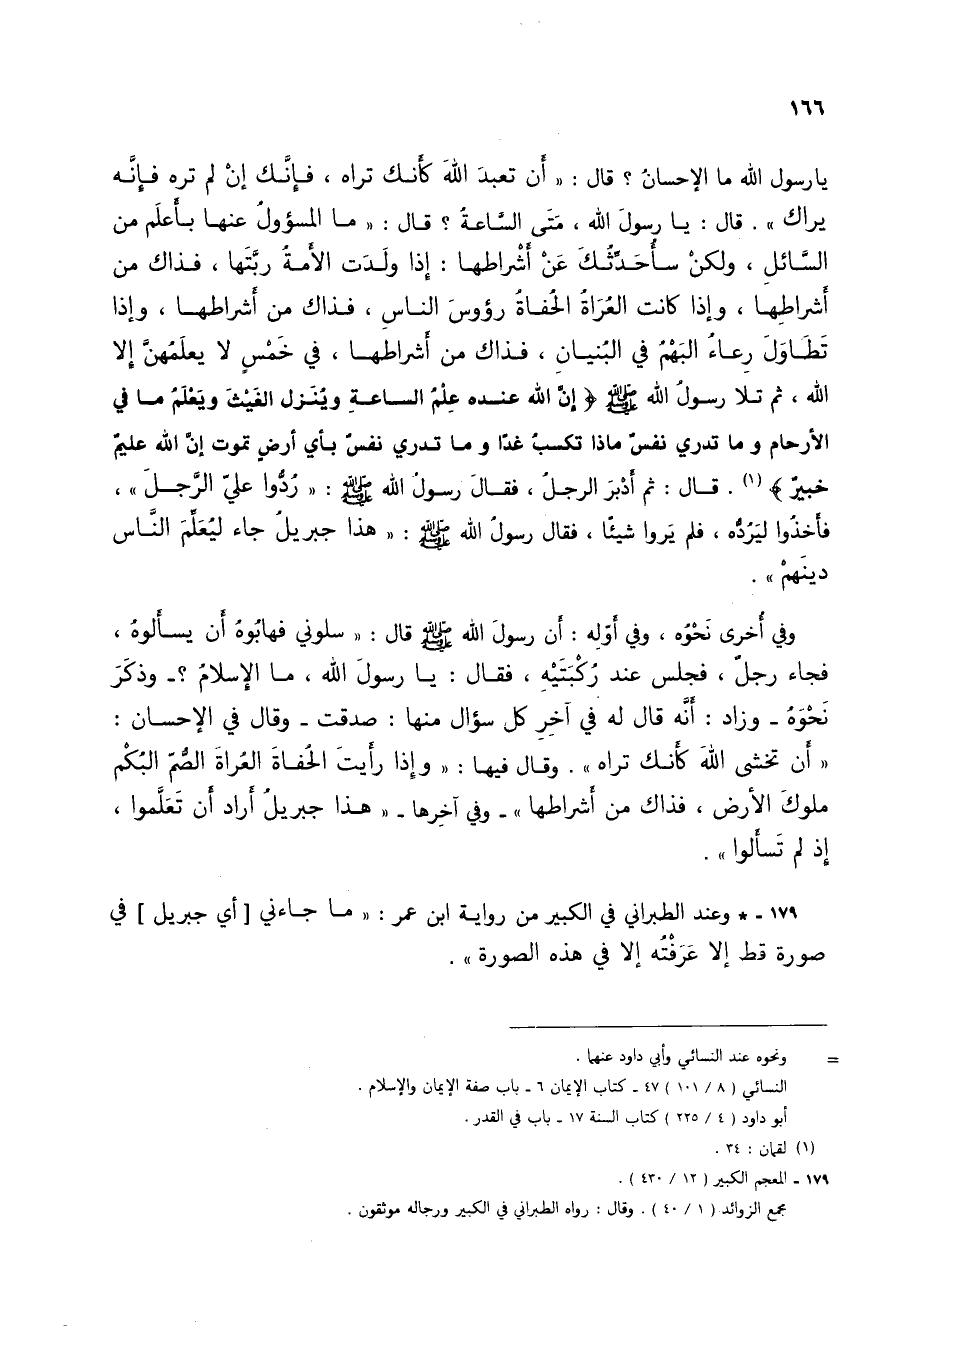 ١٦٦
يارسول الله ما الإحسانُ ؟ قال : « أن تعبدَ اللهَ كأنك تراه ، فإنَّك إنْ لم تره فإنَّه
يراك » . قال : يا رسولَ الله ، مَتَى السَّاعةُ ؟ قال : « ما المسؤولُ عنها بأعلَم من
السَّائل ، ولكنْ سأُحَدِّثُكَ عَنْ أشْراطها : إذا ولَدَت الأمةُ ربَّتها ، فذاك من
أشراطِها ، وإذا كانت العُرَاةُ الحُفاةُ رؤوسَ الناس ، فذاك من أشراطها ، وإذا
تَطَاوَلَ رِعاءُ البَهْمُ في البُنيان ، فذاك من أشراطها ، في خَمْسٍ لا يعلَمُهنَّ إلا
الله ، ثم تلا رسولُ الله ﷺ ﴿ إنَّ الله عنده عِلْمُ الساعةِ ويُنَزل الغَيْثَ ويَعْلَمُ ما في
الأرحام و ما تدري نفسٌ ماذا تكسبُ غدًا و ما تدري نفسٌ بأي أرضٍ تموت إنَّ الله عليمٌ
خبيرٌ ﴾ (١) . قال : ثم أدْبَرَ الرجلُ ، فقالَ رسولُ الله ﷺ : « رُدُّوا عليّ الرَّجلَ » ،
فأخذُوا ليَرُدُّه ، فلم يَروا شيئًا ، فقال رسولُ الله ﷺ : « هذا جبريلُ جاء ليُعَلِّمَ النَّاس
دينَهمْ » .
وفي أُخرى نَحْوُه ، وفي أوّله : أن رسولَ الله ﷺ قال : « سلوني فهابُوهُ أن يسألوهُ ،
فجاء رجلٌ ، فجلس عند رُكْبَتَيْهِ ، فقال : يا رسولَ الله ، ما الإسلامُ ؟ـ وذكَرَ
نَحْوَهُ ـ وزاد : أنَّه قال له في آخرِ كل سؤال منها : صدقت ـ وقال في الإحسان :
« أن تخشى اللهَ كأنك تراه » . وقال فيها : « وإذا رأيتَ الحُفاةَ العُراةَ الصُّمّ البُكْم
ملوكَ الأرض ، فذاك من أشراطها » ـ وفي آخرها ـ « هذا جبريلُ أراد أن تَعَلَّموا ،
إذ لم تَسألوا » .
١٧٩ ـ * وعند الطبراني في الكبير من رواية ابن عمر : « ما جاءني [ أي جبريل ] في
صورة قط إلا عَرَفْتُه إلا في هذه الصورة » .
= ونحوه عند النسائي وأبي داود عنهما .
النسائي ( ٨ / ١٠١ ) ٤٧ ـ كتاب الإيمان ٦ ـ باب صفة الإيمان والإسلام .
أبو داود ( ٤ / ٢٢٥ ) كتاب السنة ١٧ ـ باب في القدر .
(١) لقمان : ٣٤ .
١٧٩ ـ المعجم الكبير ( ١٢ / ٤٣٠ ) .
مجمع الزوائد ( ١ / ٤٠ ) . وقال : رواه الطبراني في الكبير ورجاله موثقون .